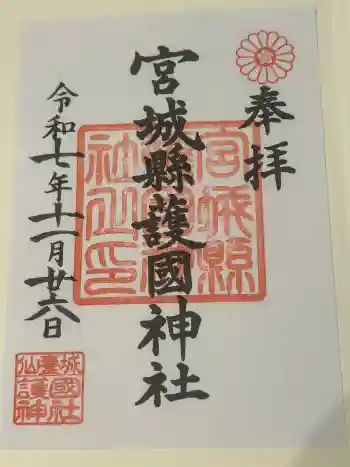 奉拝
宮城縣護國神社
令和七年十一月廿六日
宮城縣
社之印
城國社
仙臺護神